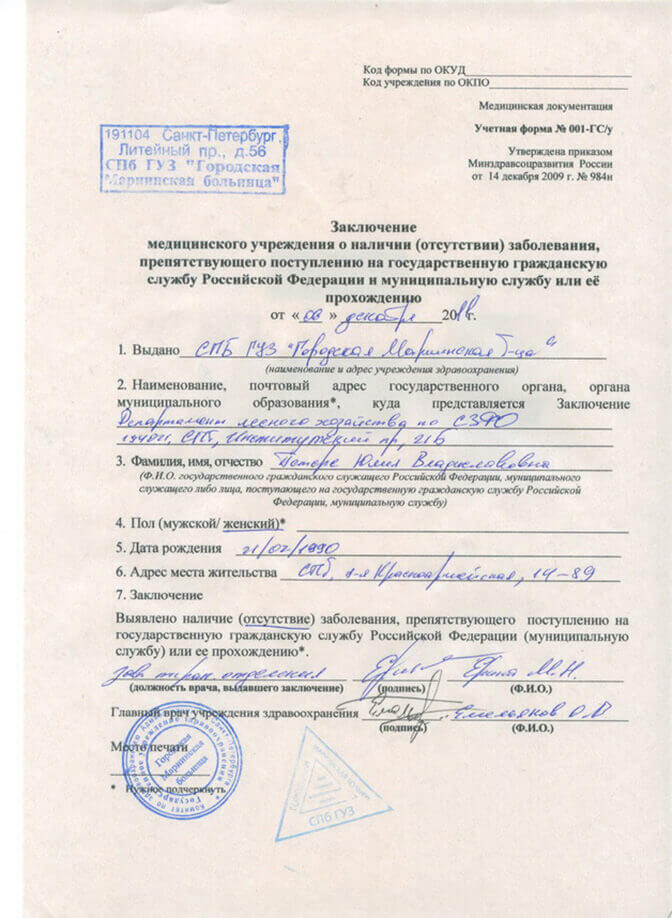 Код формы по ОКУД
Код учреждения по ОКПО
Медицинская документация
Учетная форма № 001-ГС/у
Утверждена приказом
Минздравсоцразвития России
от 14 декабря 2009 г. № 984н
191104 Санкт-Петербург,
Литейный пр., д.56
СПб ГУЗ "Городская
Мариинская больница"
Заключение
медицинского учреждения о наличии (отсутствии) заболевания,
препятствующего поступлению на государственную гражданскую
службу Российской Федерации и муниципальную службу или её
прохождению
от « » декабря 20 г.
1. Выдано СПБ ГУЗ "Городская Мариинская б-ца"
(наименование и адрес учреждения здравоохранения)
2. Наименование, почтовый адрес государственного органа, органа
муниципального образования*, куда представляется Заключение
Департамент лесного хозяйства по СЗФО
194021, СПб, Институтский пр, 21б
3. Фамилия, имя, отчество Петерс Юлия Владиславовна
(Ф.И.О. государственного гражданского служащего Российской Федерации, муниципального
служащего либо лица, поступающего на государственную гражданскую службу Российской
Федерации, муниципальную службу)
4. Пол (мужской/ женский)*
5. Дата рождения 21/02/1990
6. Адрес места жительства СПб, 1-я Красноармейская, 14-89
7. Заключение
Выявлено наличие (отсутствие) заболевания, препятствующего поступлению на
государственную гражданскую службу Российской Федерации (муниципальную
службу) или ее прохождению*.
Зав. тер. отделения М.Н.
(должность врача, выдавшего заключение) (подпись) (Ф.И.О.)
Главный врач учреждения здравоохранения Емельянов О.В
(подпись) (Ф.И.О.)
Место печати
* Нужное подчеркнуть
Городская
Мариинская
больница
СПб ГУЗ